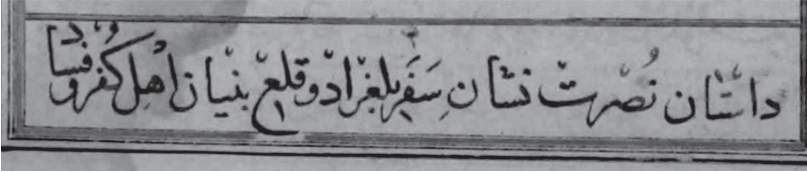 داستان نصرت نشان سفر بلغراد و قلع بنیان اهل کفر و فساد